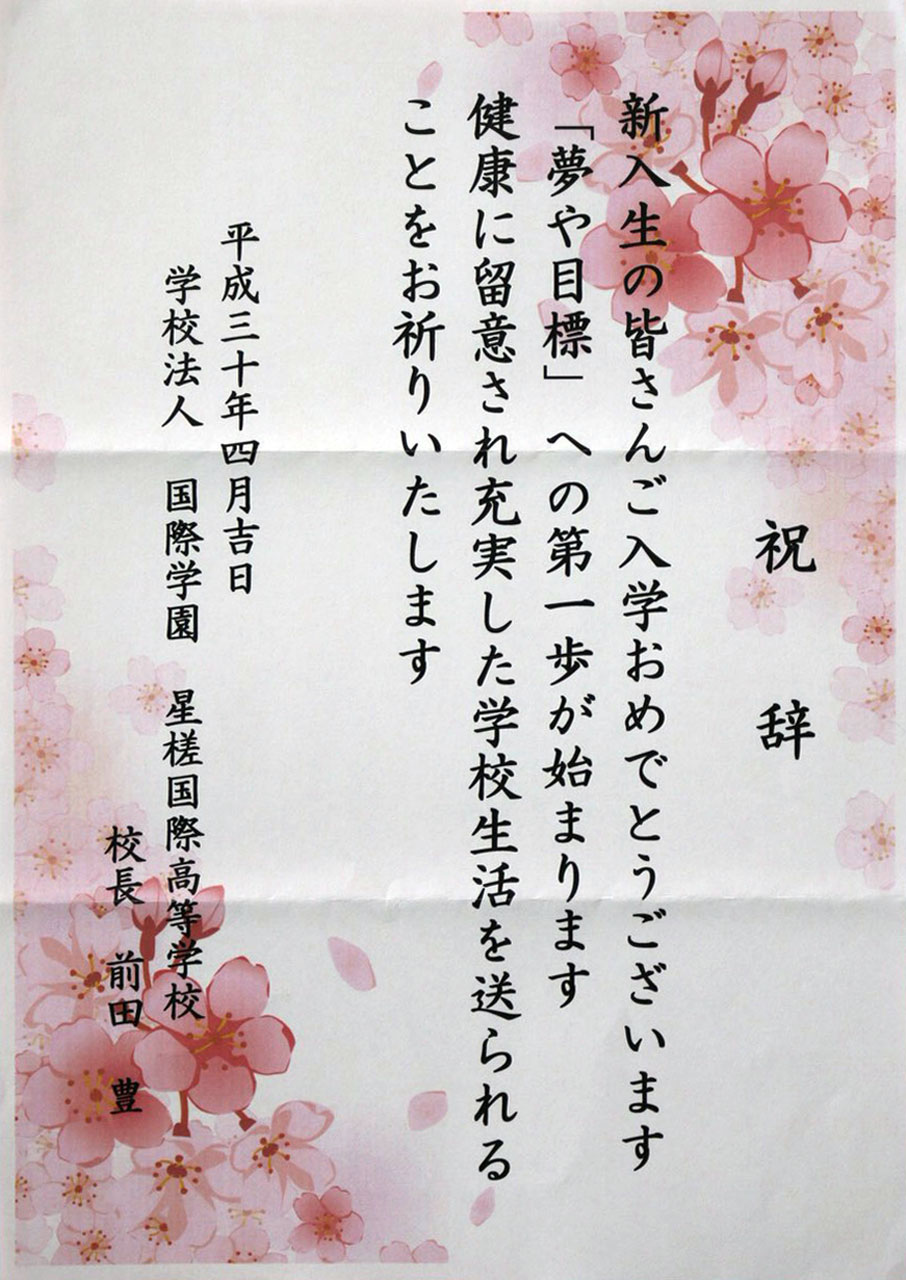 祝辞
新入生の皆さんご入学おめでとうございます
「夢や目標」への第一歩が始まります
健康に留意され充実した学校生活を送られる
ことをお祈りいたします
平成三十年四月吉日
学校法人 国際学園 星槎国際高等学校
校長 前田 豊